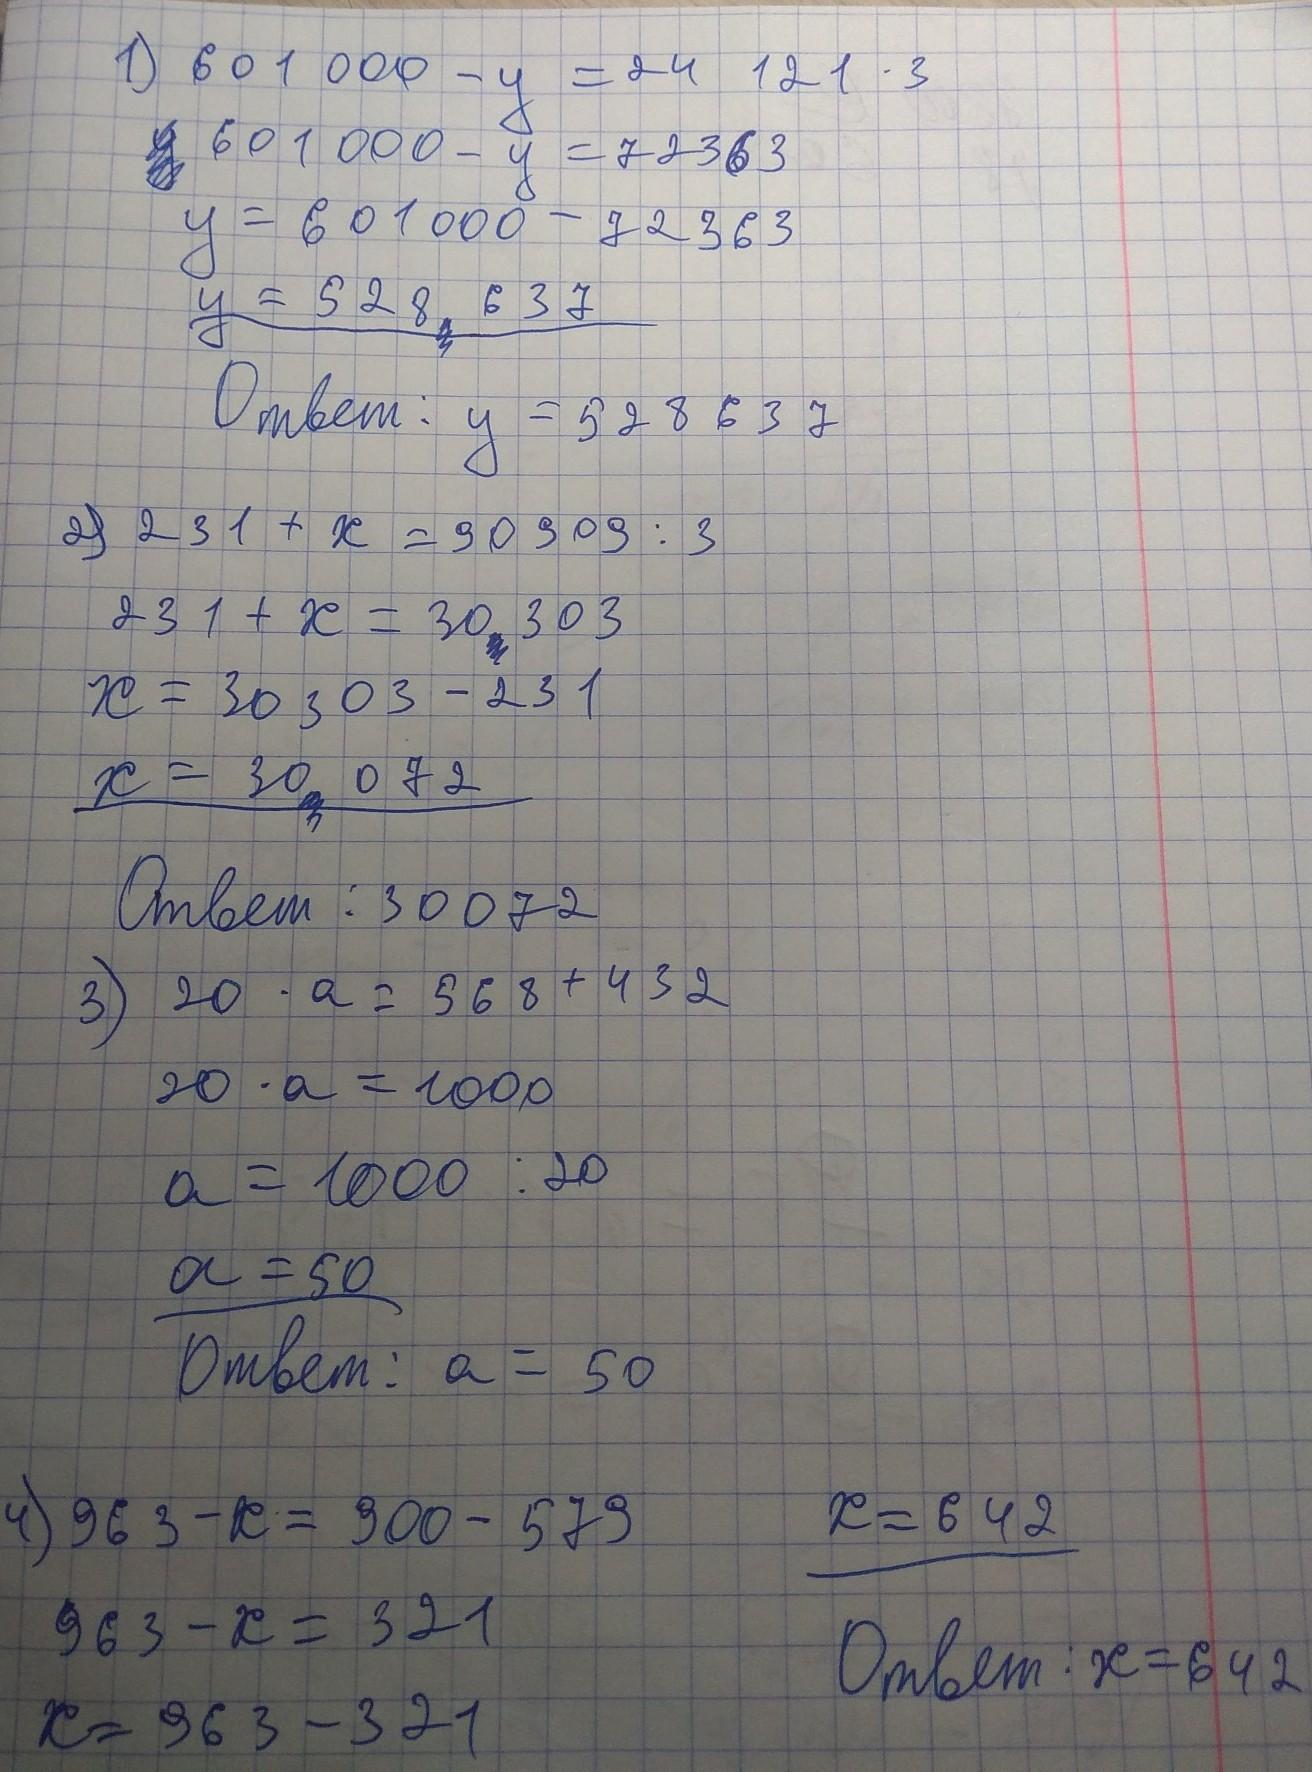 1) 601 000 - y = 24 121 · 3
601 000 - y = 72363
y = 601000 - 72363
y = 528 637
Ответ: y = 528637
2) 231 + x = 90909 : 3
231 + x = 30 303
x = 30303 - 231
x = 30 072
Ответ : 30072
3) 20 · a = 568 + 432
20 · a = 1000
a = 1000 : 20
a = 50
Ответ: a = 50
4) 963 - x = 900 - 579
963 - x = 321
x = 963 - 321
x = 642
Ответ : x = 642